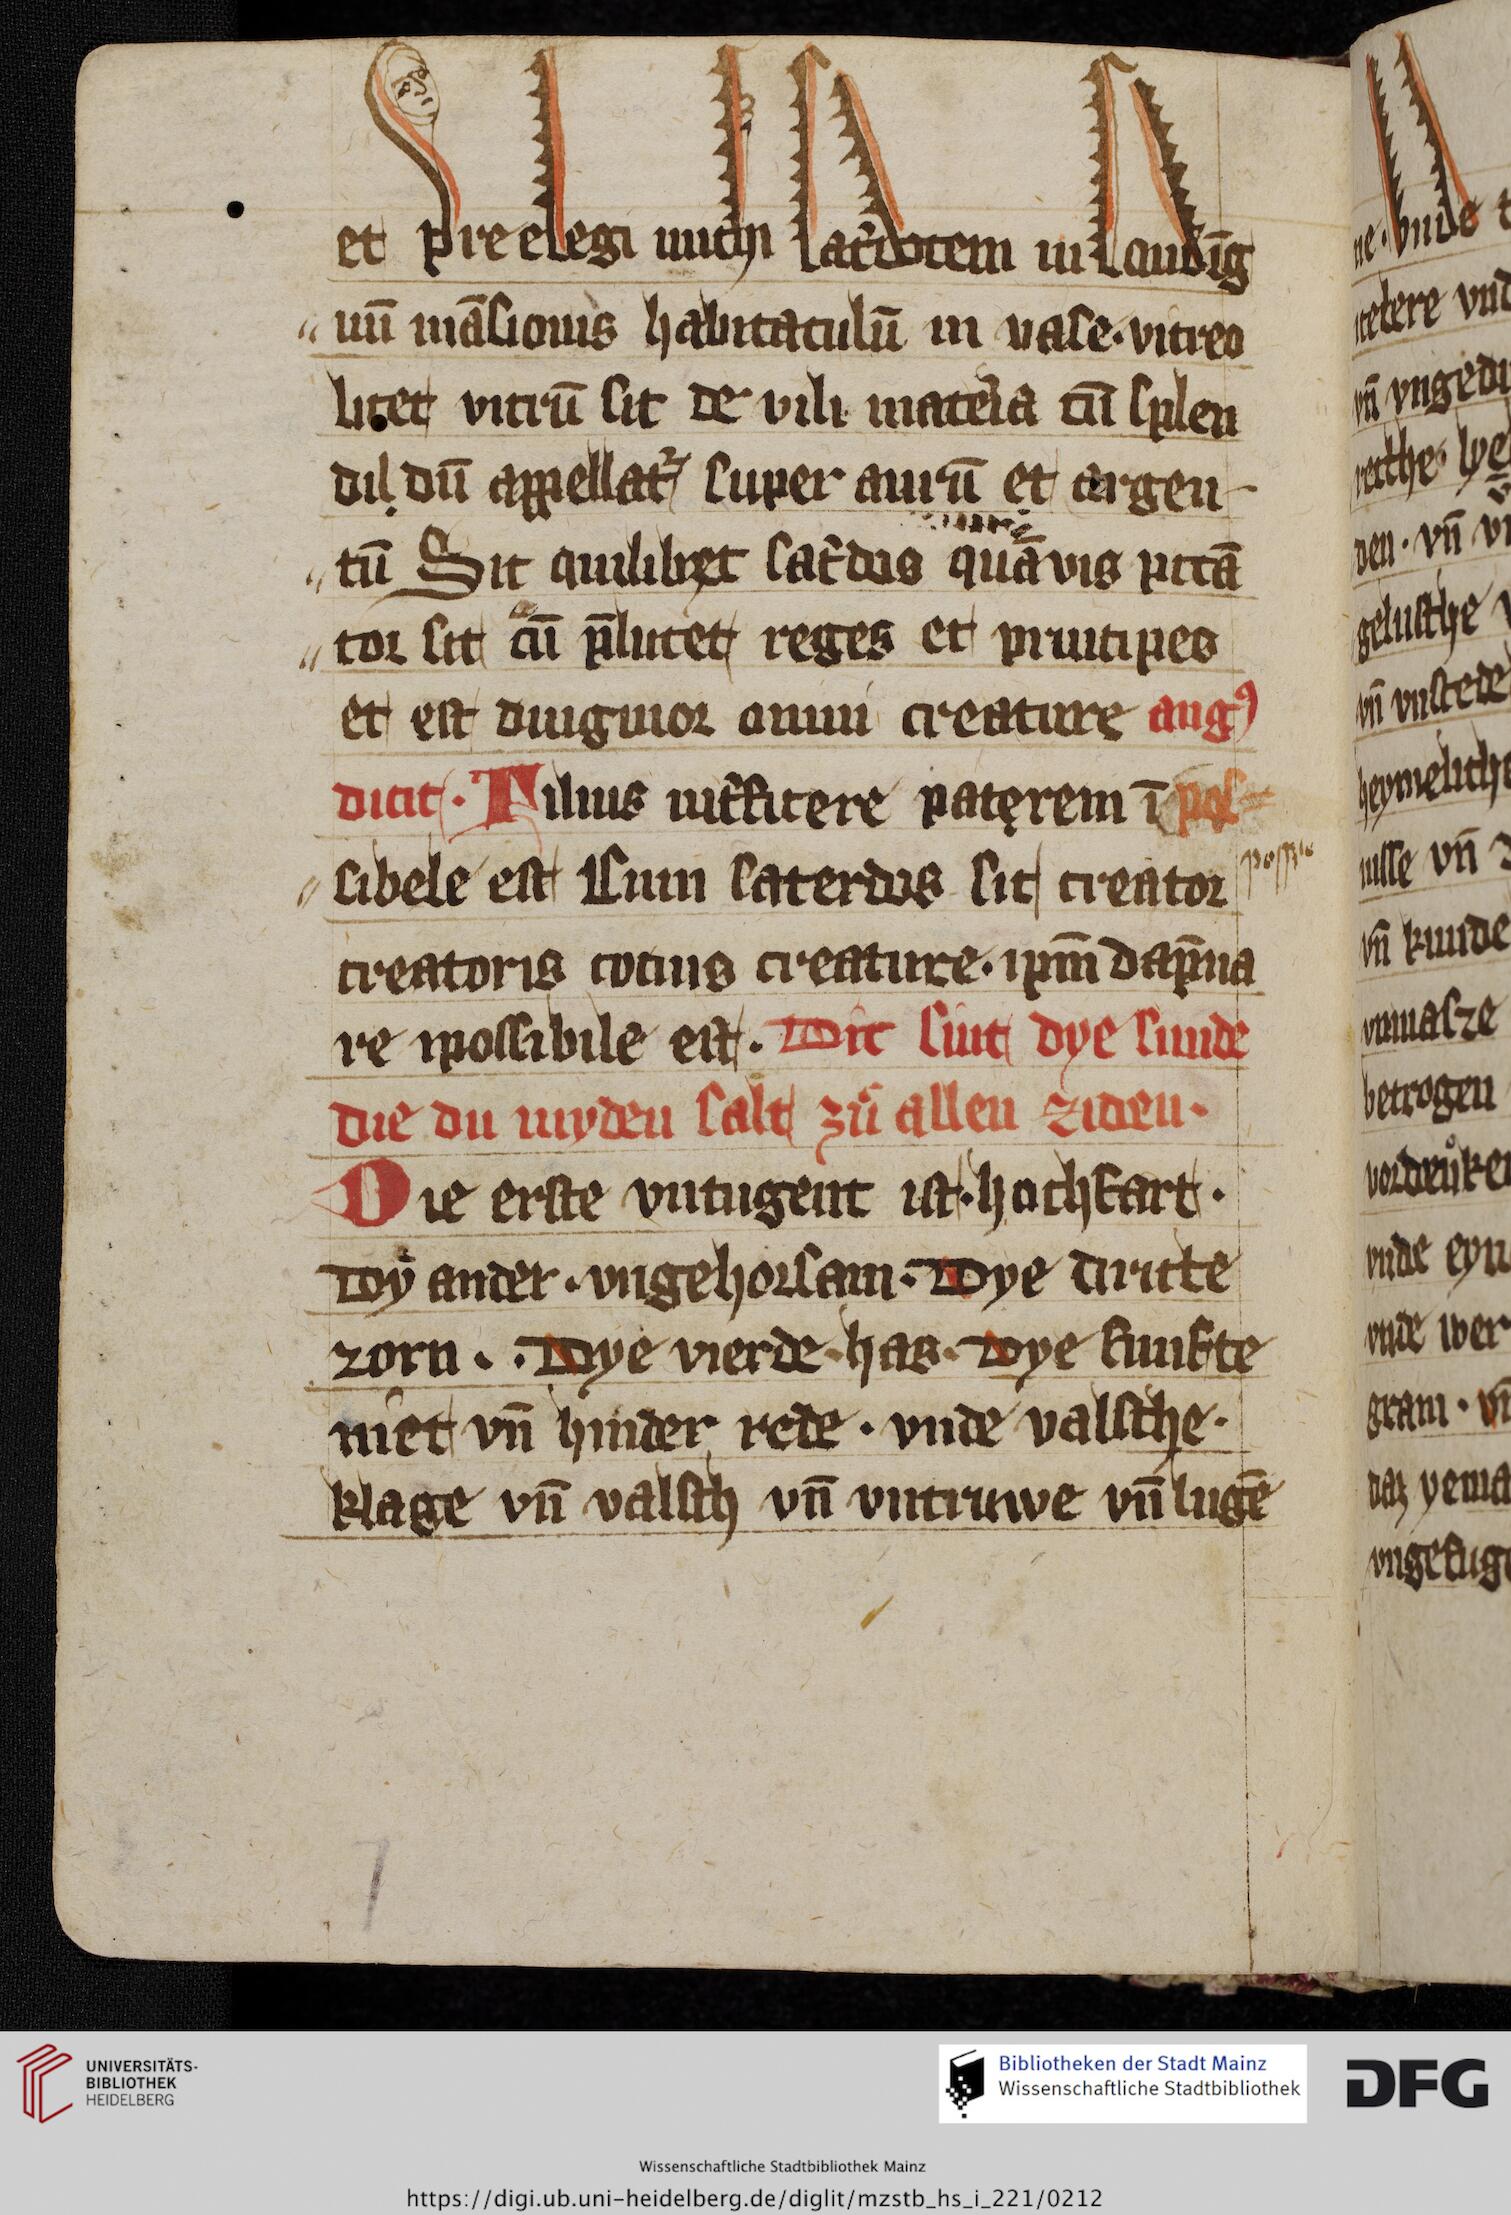 et preelegi michi sac̄dotem in condig
nū māsionis habitaculū in vase · vitreo
licet vitrū sit de vili mateia cū splen
di dū appellat᷑ super aurū et argen
tū Sit quilibet sac̄dos quāvis pccā
tor sit cū p̄lucet reges et principes
et est dingnior omni creature aug⁹
dicit · Filius int̄ficere paterem ī pos
sibele est Cum sacerdos sit creator
creatoris tocius creature · ipm̄ dap̄na
re ipossibile est · Dit sint dye sunde
die du myden salt zů allen ziden ·
Die erste vntugent ist · hochfart ·
Dy ander · vngehorsam · Dye dritte
zorn · · Dye vierde · has · Dye funfte
niet vn̄ hinder rede · vnde valsche ·
klage vn̄ valsch vn̄ vntruwe vn̄ lugē
ne · vnde
vn̄ vngedu
den · vn̄
vn̄ vnstede
heymelich
nisse vn̄
vn̄ kunde
vnmasze
betrogen
vordrůke
vnde eyn
vnde wer
gram · vn̄
daz yema
vngefug
7
UNIVERSITÄTS-
BIBLIOTHEK
HEIDELBERG
Bibliotheken der Stadt Mainz
Wissenschaftliche Stadtbibliothek
DFG
Wissenschaftliche Stadtbibliothek Mainz
https://digi.ub.uni-heidelberg.de/diglit/mzstb_hs_i_221/0212